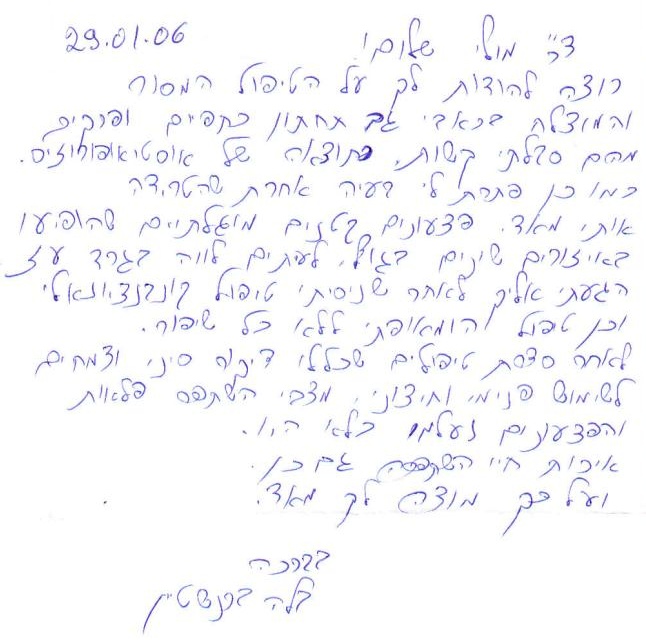 29.01.06
ד"ר מולי שלום!
רוצה להודות לך על הטיפול המסור
והמוצלח בכאבי גב תחתון כתפיים ופרקים
מהם סבלתי קשות, כתוצאה של אוסטיאופורוזיס.
כמו כן פתרת לי בעיה אחרת שהטרידה
אותי מאד. פצעונים קטנים מוגלתיים שהופיעו
באיזורים שונים בגוף, לעתים לווה בגרד עז
הגעתי אליך לאחר שניסיתי טיפול קונבנציונאלי
וכן טיפול הומאופתי ללא כל שיפור.
לאחר סדרת טיפולים שכללו דיקור סיני וצמחים
לשימוש פנימי וחיצוני, מצבי השתפר פלאות
והפצעונים נעלמו כלא היו.
איכות חיי השתפרה גם כן.
ועל כך מודה לך מאד.
בברכה
בלה ברנשטיין